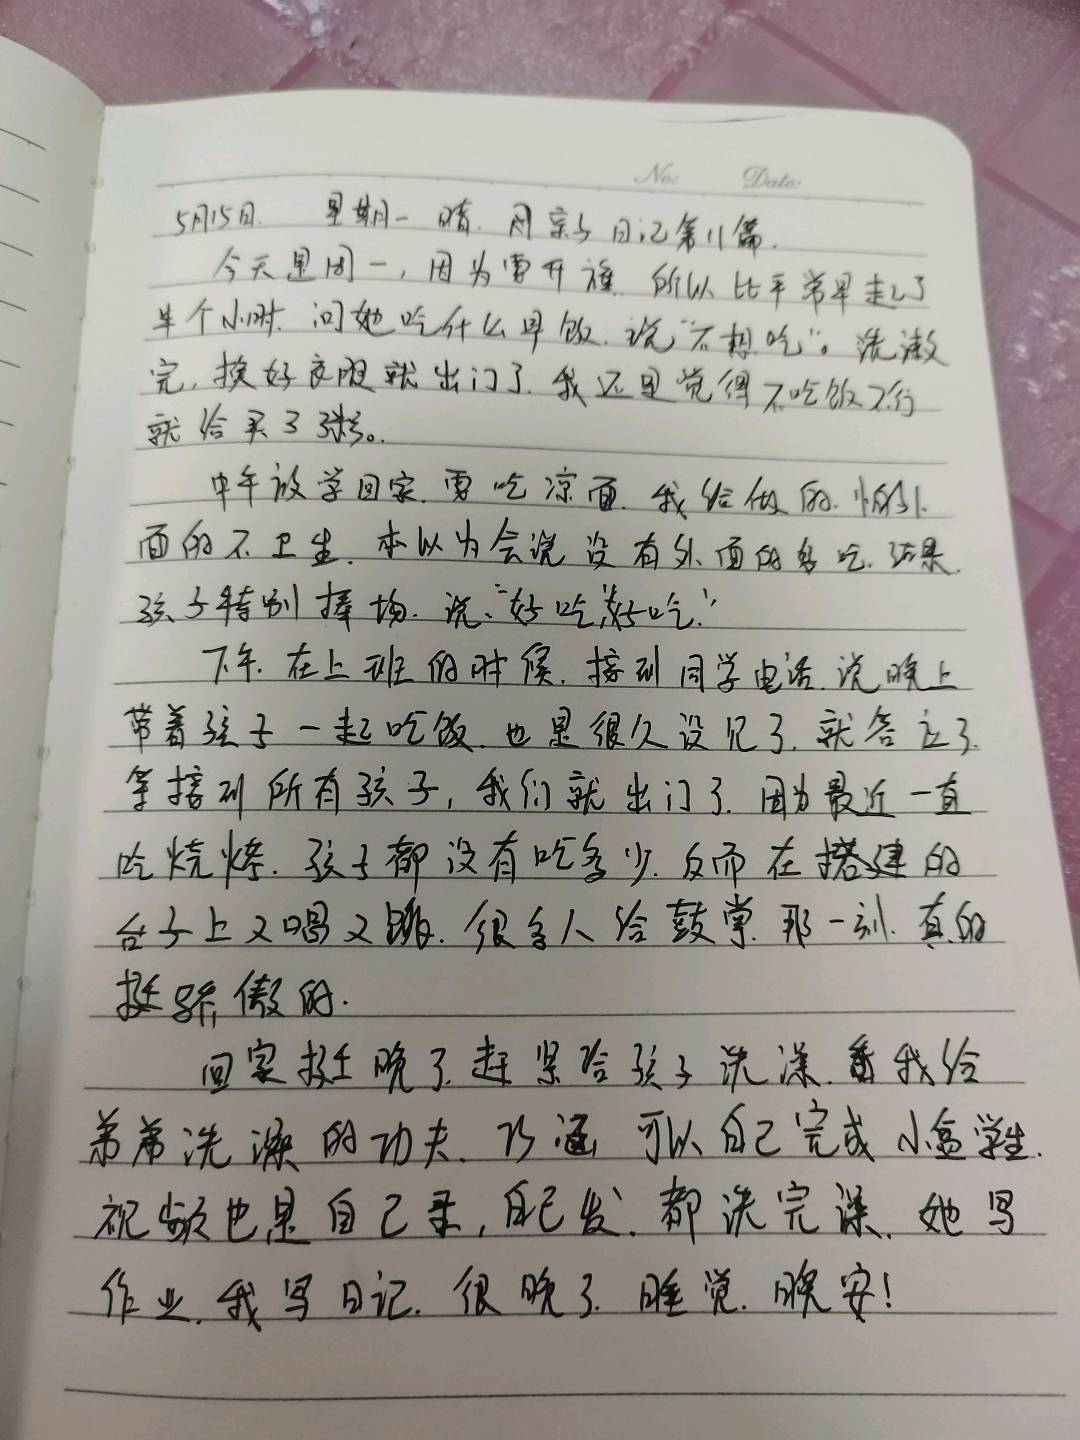 No:    Date:
5月15日. 星期一 晴. 周 亲子日记第11篇.
今天是周一, 因为要升旗. 所以比平常早起了
半个小时. 问她吃什么早饭. 说"不想吃"。洗漱
完, 换好衣服就出门了. 我还是觉得不吃饭不行
就给买了粥。
中午放学回家. 要吃凉面. 我给做的. 怕外
面的不卫生. 本以为会说没有外面的好吃. 结果.
孩子特别捧场. 说:"好吃,好吃"
下午. 在上班的时候. 接到同学电话. 说晚上
带着孩子一起吃饭. 也是很久没见了. 就答应了.
等接到所有孩子, 我们就出门了. 因为最近一直
吃烧烤. 孩子都没有吃多少. 反而在搭建的
台子上又唱又跳. 很多人给鼓掌. 那一刻. 真的
挺骄傲的.
回家挺晚了. 赶紧给孩子洗澡. 我给
弟弟洗澡的功夫. 涵可以自己完成小盒学生.
视频也是自己录, 自己发. 都洗完澡. 她写
作业. 我写日记. 很晚了. 睡觉. 晚安!